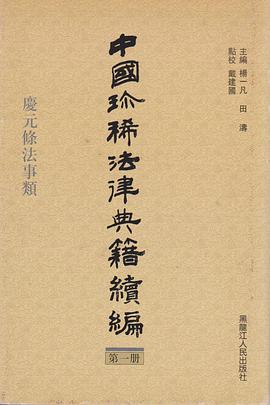 主編 楊一凡 田濤
點校 戴建國
中國珍稀法律典籍續編
第一册
慶元條法事類
黑龍江人民出版社